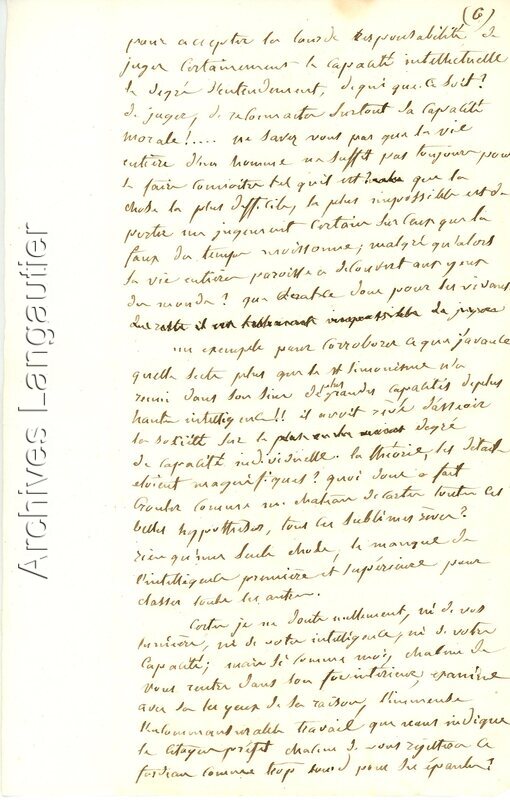 (6)
pour accepter la lourde responsabilité de
juger certainement la capacité intellectuelle
le degré d'entendement, de qui que ce soit?
de juger, de reconnaitre surtout sa capacité
morale!.... ne savez vous pas que la vie
entière d'un homme ne suffit pas toujours pour
le faire connoitre tel qu'il est? que la
chose la plus difficile, la plus impossible est de
porter un jugement certain sur ceux que la
faux du temps moissonne; malgré qu'alors
la vie entière paroisse a découvert aux yeux
du monde? que sera-ce donc pour les vivans
du reste il est totalement impossible de juger
un exemple pour corroborer ce que j'avance
quelle secte plus que le st simonisme n'a
réuni dans son sein de plus grandes capacités de plus
haute intelligence!! il avoit rêvé d'asseoir
la société sur le degré
de capacité individuelle. la théorie, les détails
etoient magnifiques? quoi donc a fait
crouler comme un chateau de cartes toutes ces
belles hyppothèses, tous ces sublimes rêves?
rien qu'une seule chose, le manque de
l'intelligence première et supérieure pour
classer toutes les autres.
Certes je ne doute nullement, ni de vos
lumières, ni de votre intelligence, ni de votre
capacité; mais si comme moi, chacun de
vous rentre dans son for intérieur, examine
avec les yeux de sa raison, l'immense
l'incommensurable travail que nous indique
le citoyen préfet chacun de vous rejettera ce
fardeau comme trop lourd pour ses épaules?
Archives Langautier